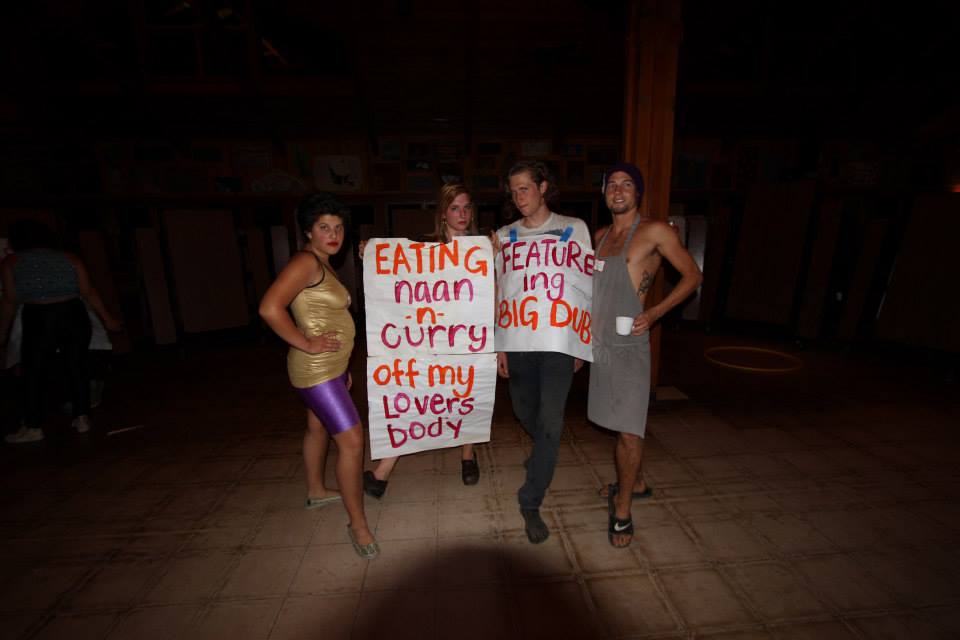 EATING
naan
-n-
curry
off my
Lovers
body
FEATURE
ing
BIG DUB